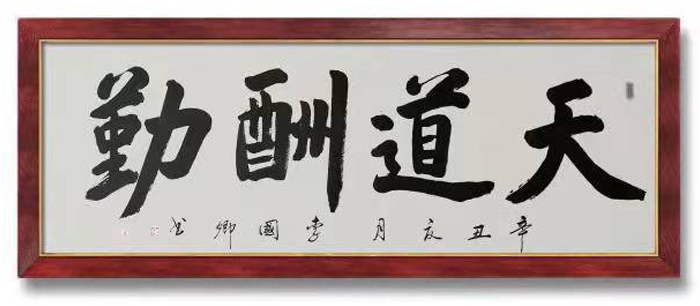 天道酬勤
辛丑亥月李國卿书